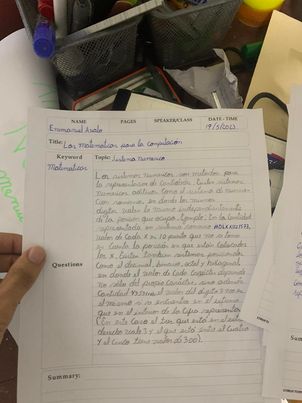 NAME PAGES SPEAKER/CLASS DATE - TIME
Emmanuel 19/5/2023
Title: Las Matemáticas para la computación
Keyword Topic: Sistema Numerico
Matematicas
Los sistemas numericos son metodos para
la representacion de cantidades. Existen sistemas
numericos aditivos como el sistema de numera
cion romana, en donde los mismos
digitos valen lo mismo independientemente
de la posicion que ocupa. Ejemplo: En la cantidad
representada en sistema romano
valor de cada X es 10 puesto que no se toma
en cuenta la posicion en que estan colocadas
las X. Existen tambien sistemas posicionales
como el decimal, binario, octal y hexadecimal
en donde el valor de cada caracter depende
no solo del propio caracter, sino
cantidad el valor del digito 3 no es
el mismo si se encuentra en el extremo
que en el interior de la cifra representada
(En este caso el tres que esta en el extremo
derecho vale 3 y el que esta entre el cuatro
y el cinco tiene valor de 300).
Questions
Summary: